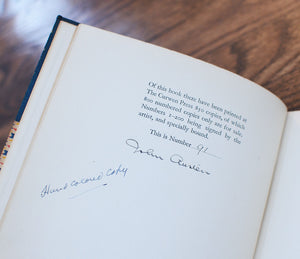 Of this book there have been printed at
The Curwen Press 830 copies, of which
800 numbered copies only are for sale,
Numbers 1–200 being signed by the
artist, and specially bound.
This is Number 92
John Austen
Hand colored copy